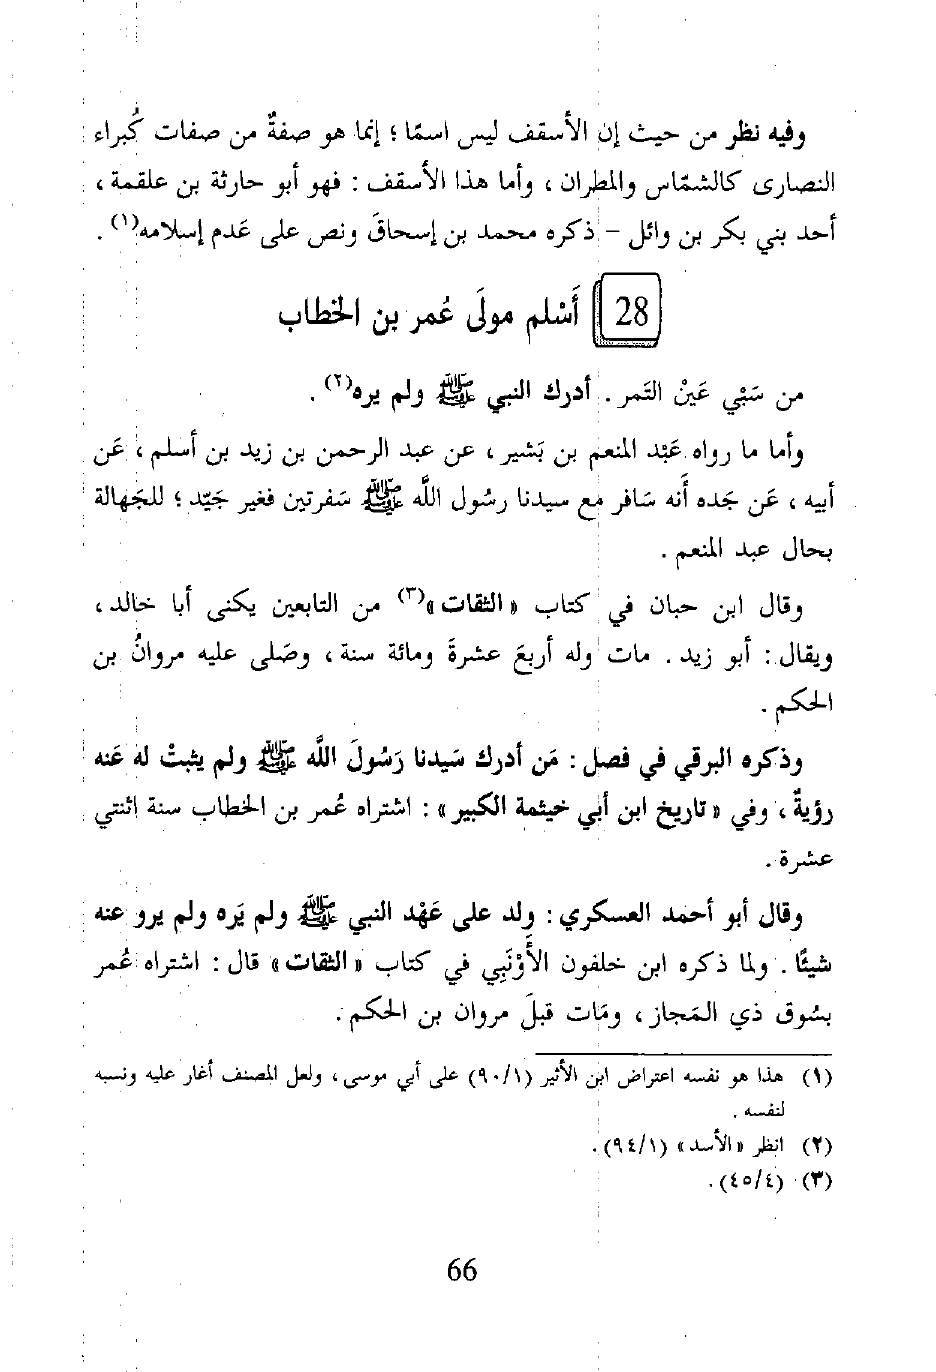 وفيه نظر من حيث إن الأسقف ليس اسمًا ؛ إنما هو صفةٌ من صفات كُبراء
النصارى كالشمّاس والمطران ، وأما هذا الأسقف : فهو أبو حارثة بن علقمة ،
أحد بني بكر بن وائل - ذكره محمد بن إسحاقَ ونص على عَدم إسلامه(١) .
28 أَسْلم مولَى عُمر بن الخطاب
من سَبْي عَيْن التَمر . أدرك النبي ﷺ ولم يره(٢) .
وأما ما رواه عَبْد المنعم بن بَشير ، عن عبد الرحمن بن زيد بن أسلم ، عَن
أبيه ، عَن جَده أَنه سَافر مع سيدنا رسُول اللَّه ﷺ سَفرتين فغير جَيّد ؛ للجَهالة
بحال عبد المنعم .
وقال ابن حبان في كتاب « الثقات »(٣) من التابعين يكنى أبا خالد ،
ويقال : أبو زيد . مات وله أربعَ عشرةَ ومائة سنة ، وصَلى عليه مروانُ بن
الحكم .
وذكره البرقي في فصل : مَن أدرك سَيدنا رَسُولَ اللَّه ﷺ ولم يثبتْ له عَنه
رؤيةٌ ، وفي « تاريخ ابن أبي خيثمة الكبير » : اشتراه عُمر بن الخطاب سنة اثنتي
عشرة .
وقال أبو أحمد العسكري : ولد على عَهْد النبي ﷺ ولم يَره ولم يرو عنه
شيئًا . ولما ذكره ابن خلفون الأَوْنَبِي في كتاب « الثقات » قال : اشتراه عُمر
بسُوق ذي المَجاز ، ومَات قبلَ مروان بن الحكم .
(١) هذا هو نفسه اعتراض ابن الأثير (٩٠/١) على أبي موسى ، ولعل المصنف أغار عليه ونسبه
لنفسه .
(٢) انظر « الأسد » (٩٤/١) .
(٣) (٤٥/٤) .
66